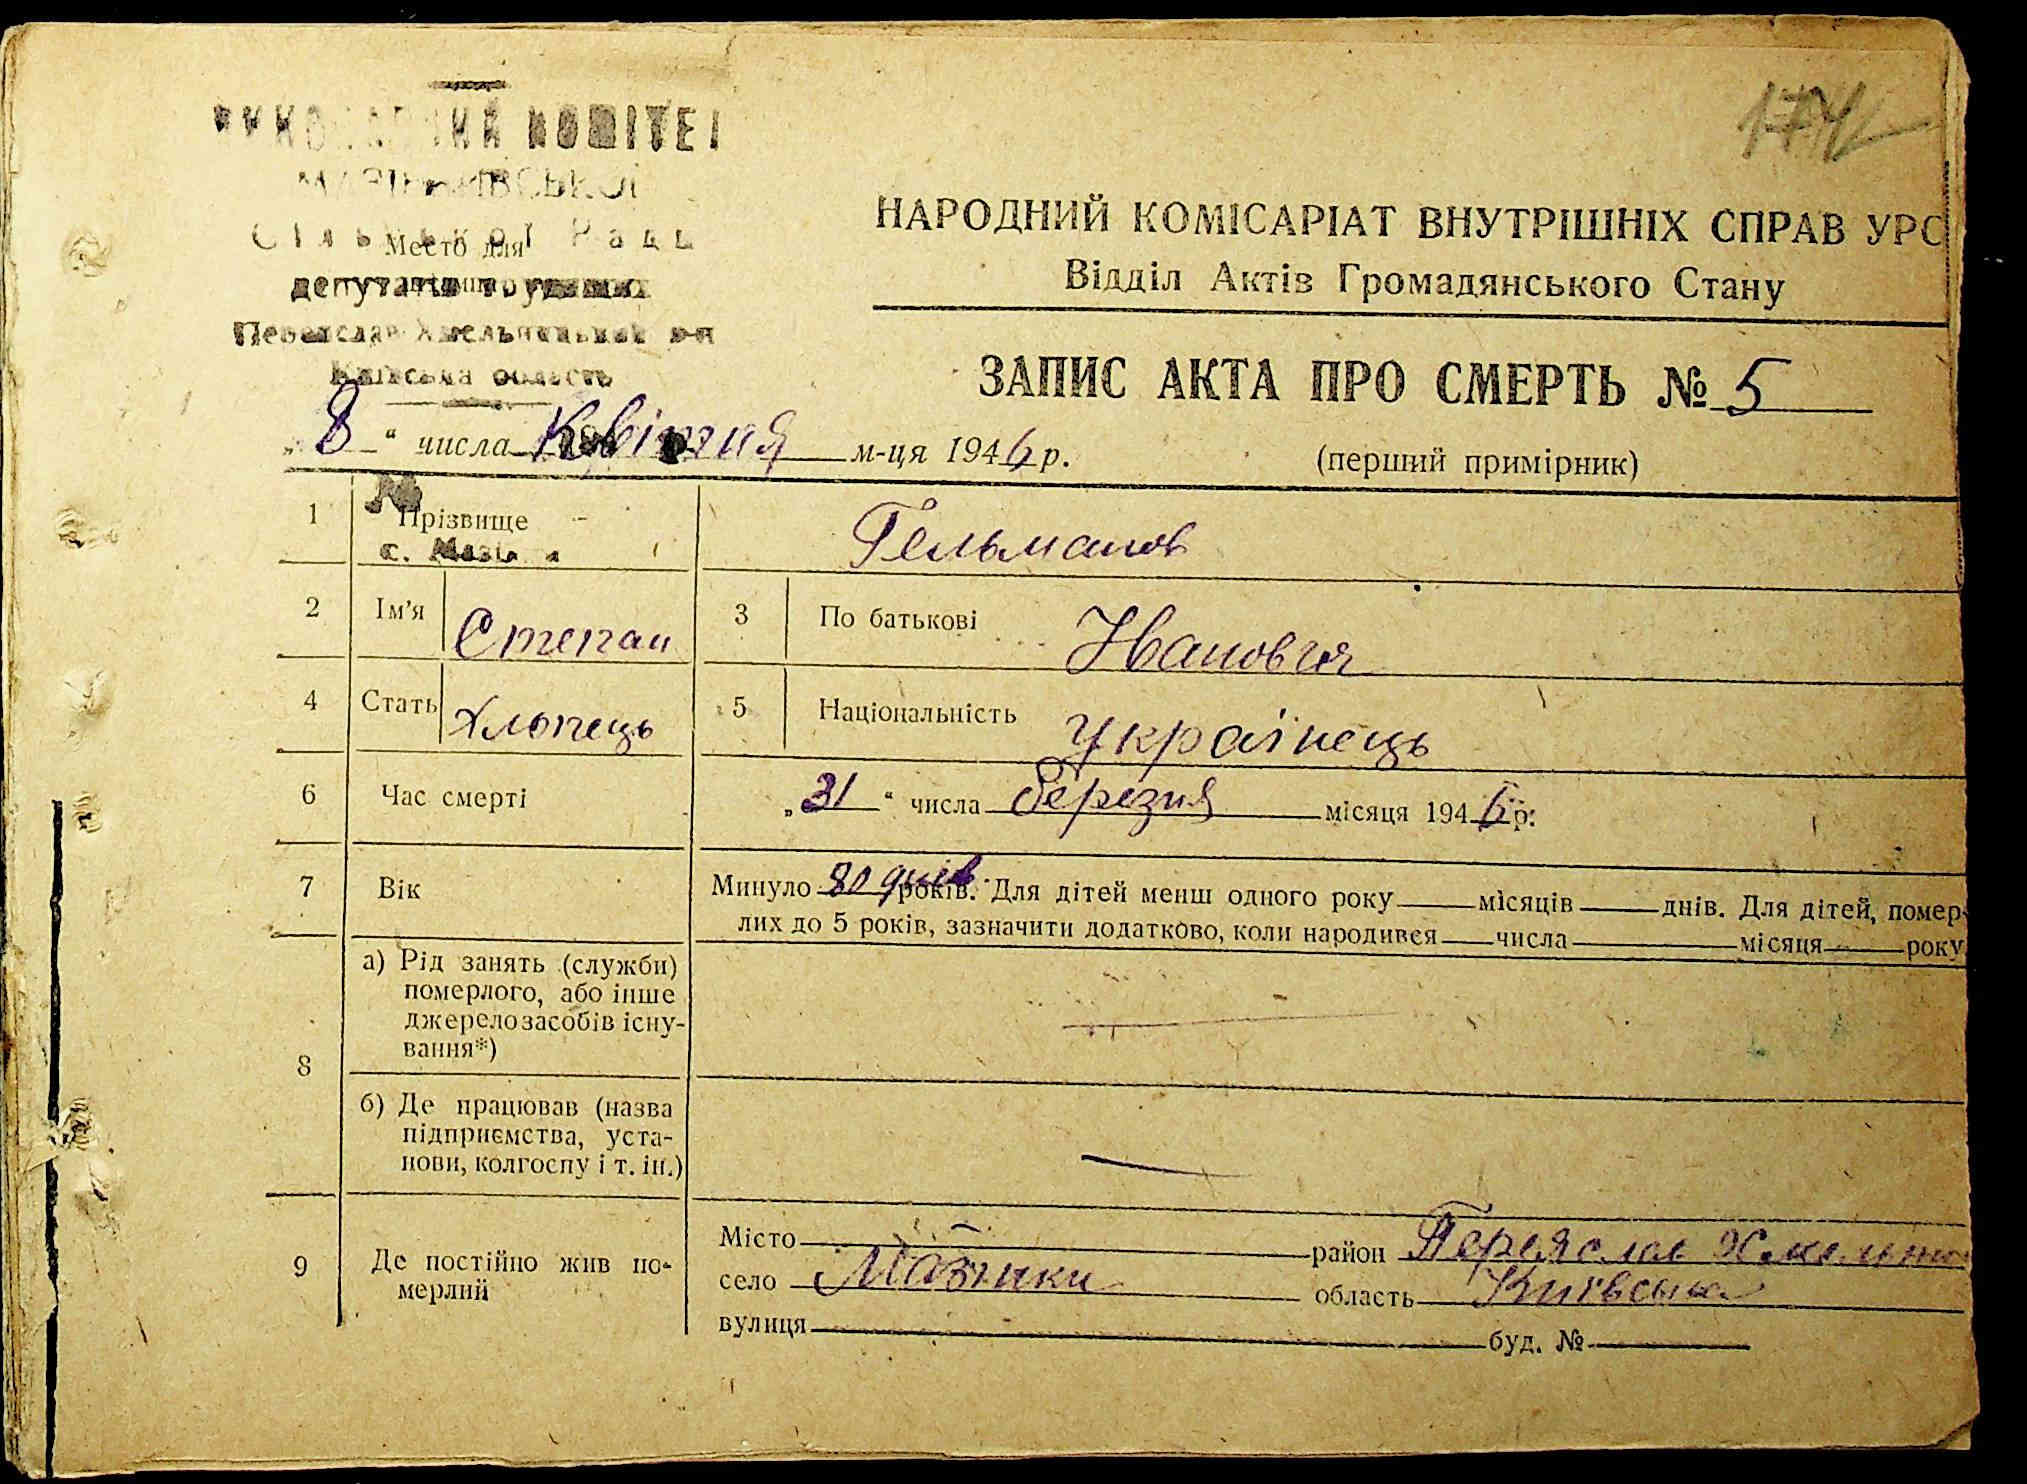 КОМІТЕТ
Сільської Ради
Место для
депутатів трудящих
Переяслав-Хмельницький р-н
Київська область
НАРОДНИЙ КОМІСАРІАТ ВНУТРІШНІХ СПРАВ УРС
Відділ Актів Громадянського Стану
ЗАПИС АКТА ПРО СМЕРТЬ № 5
„8“ числа Квітня м-ця 1946 р.
(перший примірник)
1 Прізвище Гельманов
с.
2 Ім'я Степан 3 По батькові Іванович
4 Стать Хлопець 5 Національність Українець
6 Час смерті „31“ числа березня місяця 1946 р.
7 Вік Минуло 80 днів років. Для дітей менш одного року місяців днів. Для дітей, помер-
лих до 5 років, зазначити додатково, коли народився числа місяця року
8 а) Рід занять (служби)
померлого, або інше
джерело засобів існу-
вання*)
б) Де працював (назва
підприємства, уста-
нови, колгоспу і т. ін.)
9 Де постійно жив по-
мерлий
Місто — район Переяслав Хмельни
село Мазінки область Київська
вулиця буд. №